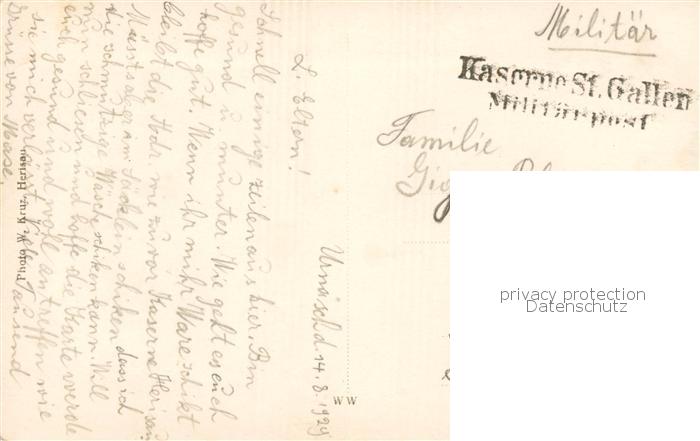 Militär
Kaserne St. Gallen
Militärpost
Familie
L. Eltern!
Urnäsch d. 14. 8. 1929
Schnell einige zeilen aus hier. Bin
gesund u munter. Wie geht es euch
hoffe gut. Wenn ihr mihr Ware schikt
bleibt die Adr. wie zuvor Kaserne Herisau
Müsst aber ein Säcklein schiken dass ich
die schmutzige Wäsche schiken kann. Will
nun schliesen und hoffe die Karte werde
euch gesund und wohl antreffen wie
sie mich verlässt. Viele Tausend
Grüsse von
Photo W. Kruz, Herisau
W W
privacy protection
Datenschutz